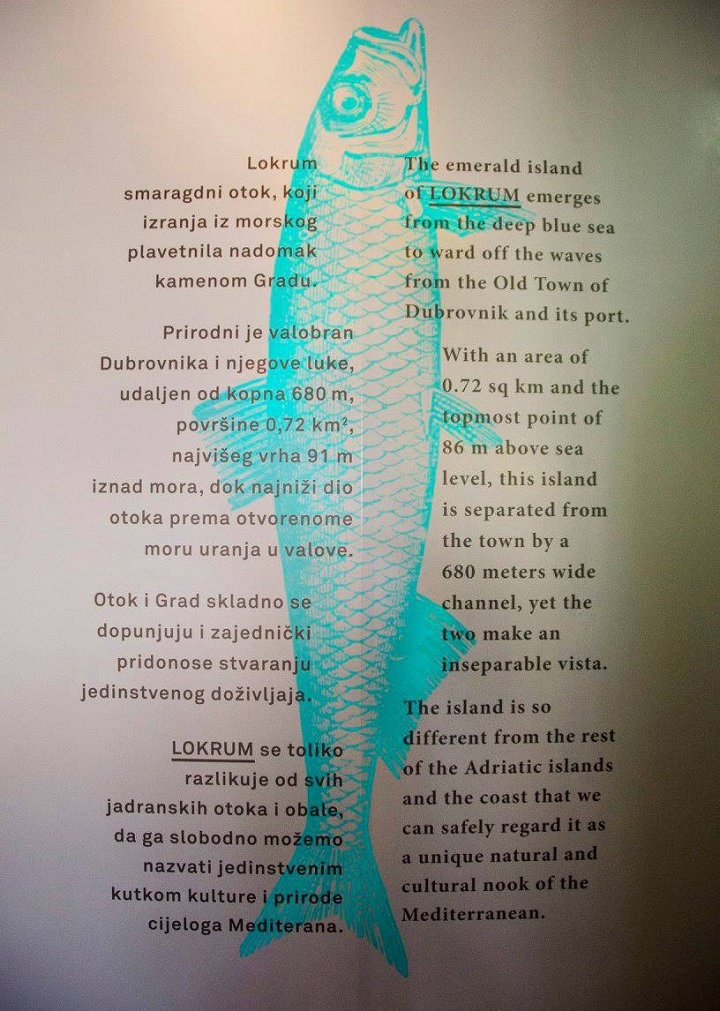 Lokrum
smaragdni otok, koji
izranja iz morskog
plavetnila nadomak
kamenom Gradu.
Prirodni je valobran
Dubrovnika i njegove luke,
udaljen od kopna 680 m,
površine 0,72 km²,
najvišeg vrha 91 m
iznad mora, dok najniži dio
otoka prema otvorenome
moru uranja u valove.
Otok i Grad skladno se
dopunjuju i zajednički
pridonose stvaranju
jedinstvenog doživljaja.
LOKRUM se toliko
razlikuje od svih
jadranskih otoka i obale,
da ga slobodno možemo
nazvati jedinstvenim
kutkom kulture i prirode
cijeloga Mediterana.
The emerald island
of LOKRUM emerges
from the deep blue sea
to ward off the waves
from the Old Town of
Dubrovnik and its port.
With an area of
0.72 sq km and the
topmost point of
86 m above sea
level, this island
is separated from
the town by a
680 meters wide
channel, yet the
two make an
inseparable vista.
The island is so
different from the rest
of the Adriatic islands
and the coast that we
can safely regard it as
a unique natural and
cultural nook of the
Mediterranean.